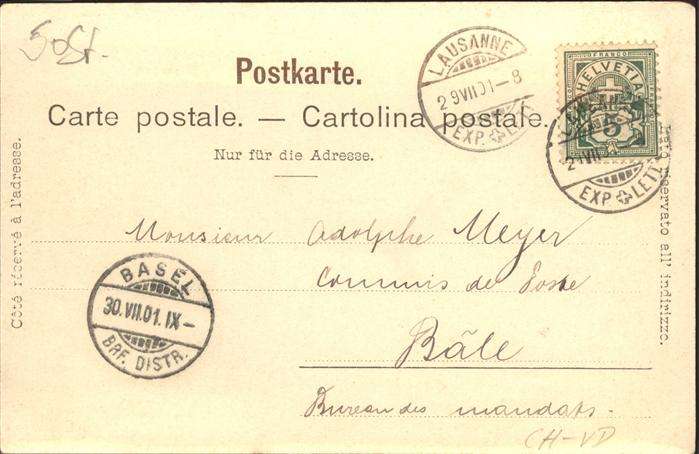 LAUSANNE
29 VII 01-8
EXP. LETT.
FRANCO
HELVETIA
5
EXP LETT
Postkarte.
Carte postale. — Cartolina postale.
Nur für die Adresse.
Côté réservé à l'adresse.
Lato riservato all' indirizzo.
Monsieur Adolphe Meyer
Commis de Poste
Bâle
Bureau des mandats.
BASEL
30.VII.01.IX-
BRF. DISTR.
CH-VD